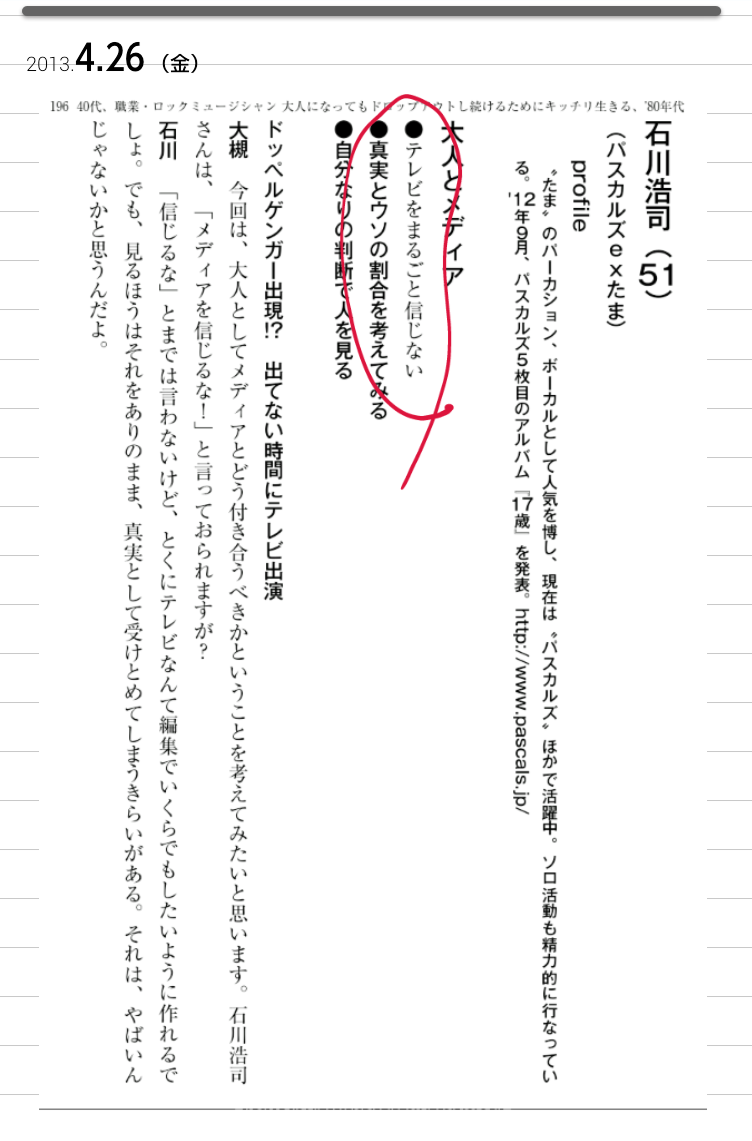 2013.4.26（金）
196 40代、職業・ロックミュージシャン 大人になってもドロップアウトし続けるためにキッチリ生きる、'80年代
石川浩司（51）
（パスカルズｅｘたま）
profile
〝たま〟のパーカション、ボーカルとして人気を博し、現在は〝パスカルズ〟ほかで活躍中。ソロ活動も精力的に行なってい
る。'12年9月、パスカルズ5枚目のアルバム『17歳』を発表。http://www.pascals.jp/
大人とメディア
●テレビをまるごと信じない
●真実とウソの割合を考えてみる
●自分なりの判断で人を見る
ドッペルゲンガー出現!?　出てない時間にテレビ出演
大槻　今回は、大人としてメディアとどう付き合うべきかということを考えてみたいと思います。石川浩司
さんは、「メディアを信じるな！」と言っておられますが？
石川　「信じるな」とまでは言わないけど、とくにテレビなんて編集でいくらでもしたいように作れるで
しょ。でも、見るほうはそれをありのまま、真実として受けとめてしまうきらいがある。それは、やばいん
じゃないかと思うんだよ。